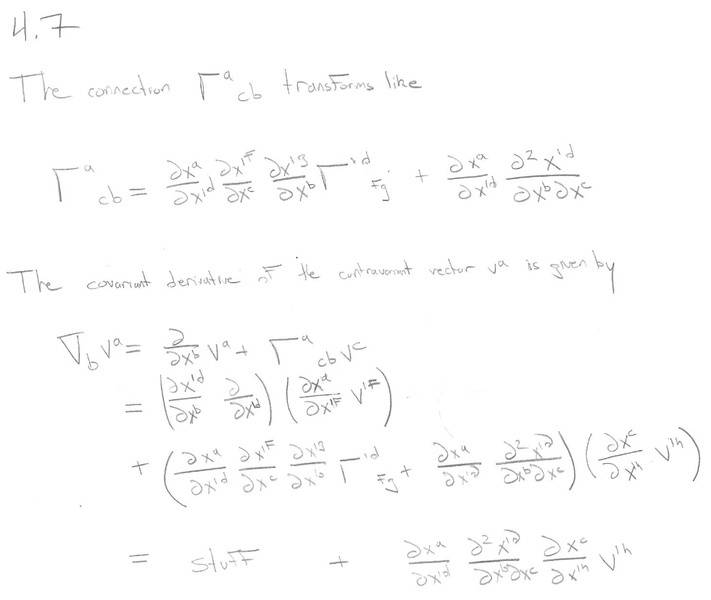 4.7
The connection Γ^a_cb transforms like
Γ^a_cb = ∂x^a/∂x'^d ∂x'^f/∂x^c ∂x'^g/∂x^b Γ'^d_fg + ∂x^a/∂x'^d ∂²x'^d/∂x^b∂x^c
The covariant derivative of the contravariant vector v^a is given by
∇_b v^a = ∂/∂x^b v^a + Γ^a_cb v^c
= (∂x'^d/∂x^b ∂/∂x'^d) (∂x^a/∂x'^f v'^f)
+ (∂x^a/∂x'^d ∂x'^f/∂x^c ∂x'^g/∂x^b Γ'^d_fg + ∂x^a/∂x'^d ∂²x'^d/∂x^b∂x^c) (∂x^c/∂x'^h v'^h)
= stuff + ∂x^a/∂x'^d ∂²x'^d/∂x^b∂x^c ∂x^c/∂x'^h v'^h